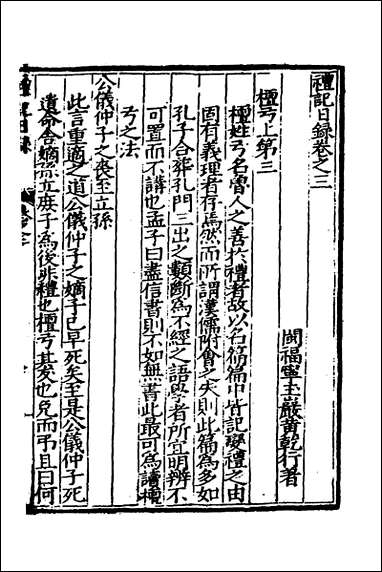 禮記日録卷之三
閩福寧玉巖黃乾行著
檀弓上第三
檀姓弓名魯人之善於禮者故以名篇篇中皆記變禮之由
固有義理者存焉然而所謂漢儒附會之失則此篇為多如
孔子合葬孔門三出之類斷為不經之語學者所宜明辨不
可置而不講也孟子曰盡信書則不如無書此最可為讀檀
弓之法
公儀仲子之喪至立孫
此言重適之道公儀仲子之嫡子已早死矣至是公儀仲子死
遺命舍嫡孫立庶子為後非禮也檀弓其友也免而弔且曰何